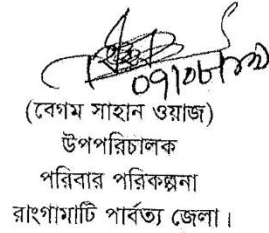 (বেগম সাহান ওয়াজ)
উপপরিচালক
পরিবার পরিকল্পনা
রাংগামাটি পার্বত্য জেলা।